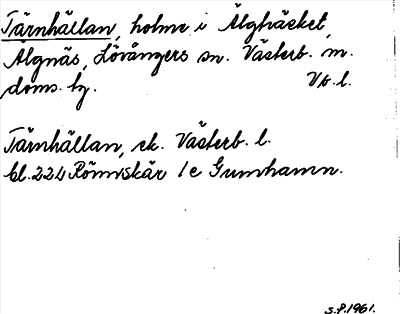 Tärnhällan, holme i Älgträsket,
Älgnäs, Lövångers sn. Västerb. m.
doms. hg. Vb. l.
Tärnhällan, ek. Västerb. l.
bl. 224 Römskär 1e Gumhamn.
S.P. 1961.